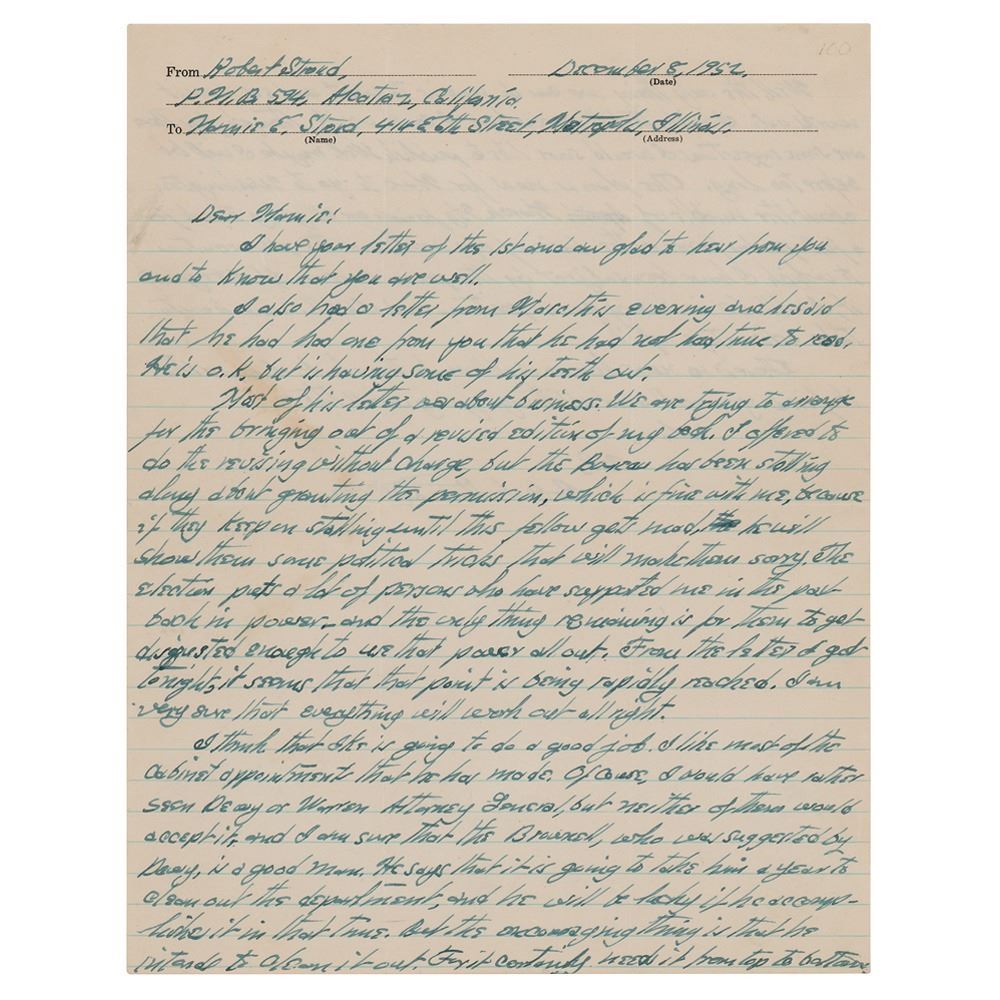 100
From Robert Stroud, December 8, 1952.
(Date)
P.M.B 594, Alcatraz, California
To Mamie E. Stroud, 414 E 6th Street, Metropolis, Illinois.
(Name) (Address)
Dear Mamie!
I have your letter of the 1st and am glad to hear from you
and to know that you are well.
I also had a letter from Marc this evening and he said
that he had had one from you that he had not had time to read.
He is O.K. but is having some of his teeth out.
Most of his letter was about business. We are trying to arrange
for the bringing out of a revised edition of my book. I offered to
do the revising without charge, but the Bureau has been stalling
along about granting the permission, which is fine with me, because
if they keep on stalling until this fellow gets mad, he will
show them some political tricks that will make them sorry. The
election puts a lot of persons who have supported me in the past
back in power, and the only thing remaining is for them to get
disgusted enough to use that power all out. From the letter I got
tonight, it seems that that point is being rapidly reached. I am
very sure that everything will work out all right.
I think that Ike is going to do a good job. I like most of the
Cabinet appointment that he has made. Of couse, I would have rather
seen Dewey or Warren Attorney General, but neither of them would
accept it, and I am sure that the Brownell, who was suggested by
Dewey, is a good man. He says that it is going to take him a year to
clean out the department, and he will be lucky if he accomp-
lishes it in that time. But the encouraging thing is that he
intends to clean it out. For it certainly needs it from top to bottom,